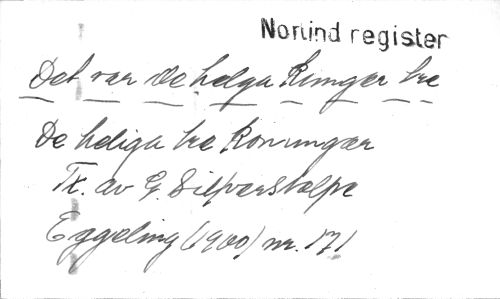 Norlind register
Det var de helga Kungar tre
De heliga tre konungar
Tx. av G. Silfverstolpe
Eggeling (1900) nr. 171